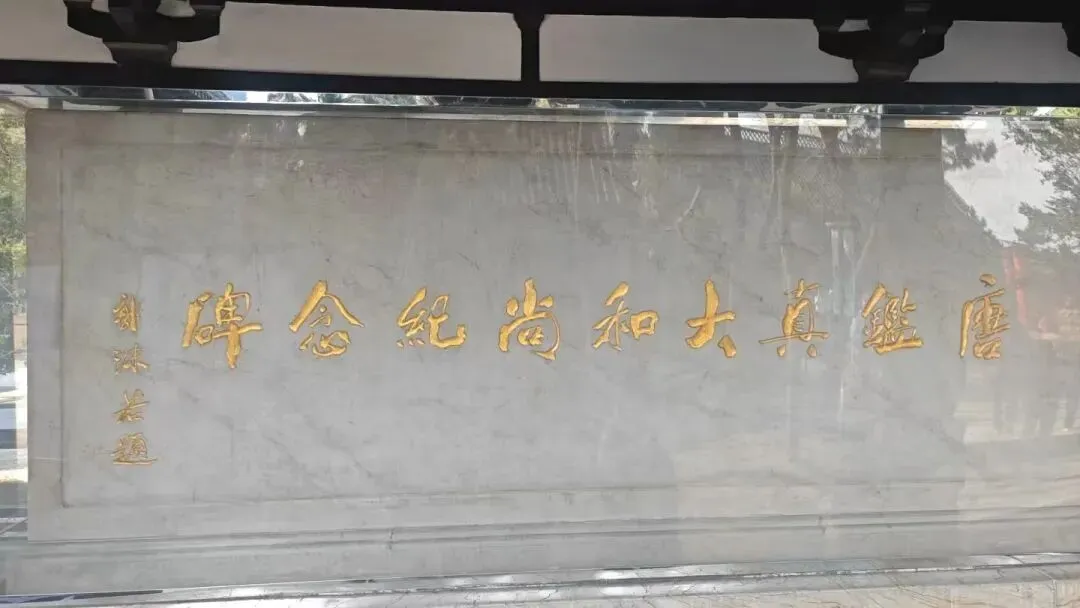 唐鑑真大和尚紀念碑
郭沫若題